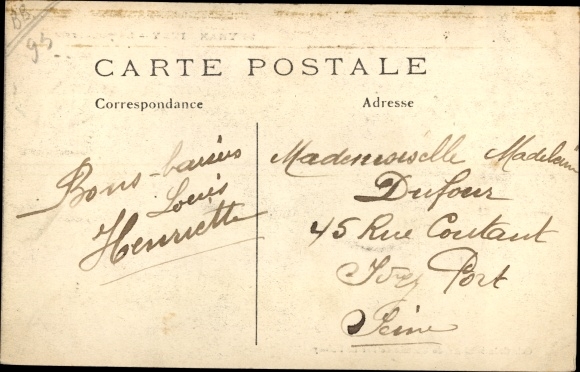 88
94
CARTE POSTALE
Correspondance
Adresse
Bons-baisers
Louis
Henriette
Mademoiselle Madeleine
Dufour
45 Rue Coutant
Ivry Port
Seine